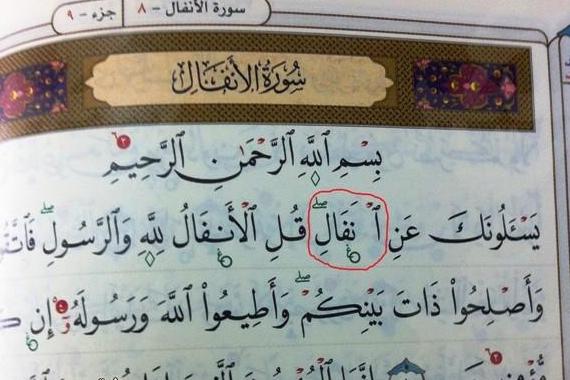 سورة الأنفال - ٨ جزء - ٩
سُورَةُ الأَنفَالِ
بِسْمِ ٱللَّهِ ٱلرَّحْمَٰنِ ٱلرَّحِيمِ
يَسْـَٔلُونَكَ عَنِ ٱ نفَالِ قُلِ ٱلْأَنفَالُ لِلَّهِ وَٱلرَّسُولِ فَٱتَّقُ
وَأَصْلِحُوا۟ ذَاتَ بَيْنِكُمْ وَأَطِيعُوا۟ ٱللَّهَ وَرَسُولَهُۥ إِن